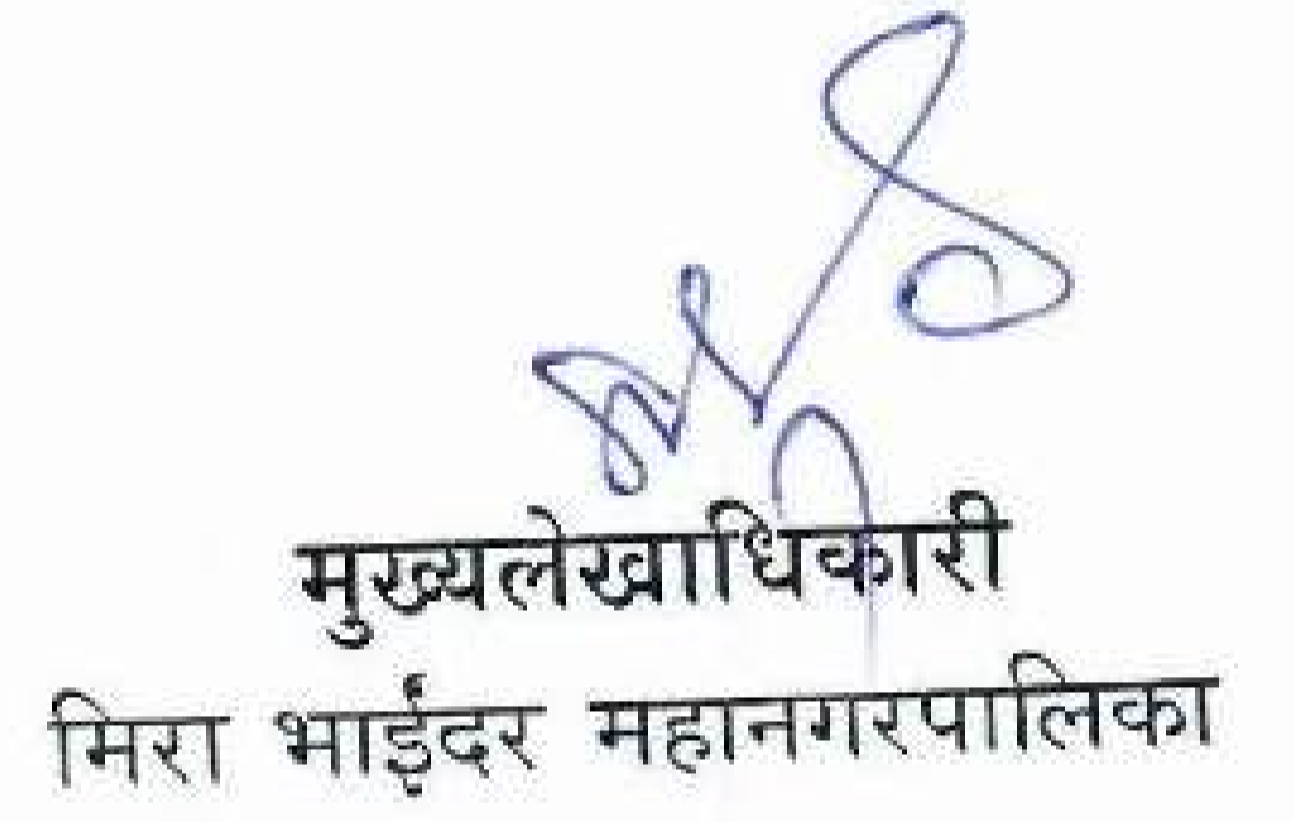 मुख्यलेखाधिकारी
मिरा भाईंदर महानगरपालिका